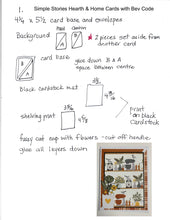 1. Simple Stories Hearth & Home Cards with Bev Code
4¼ x 5½ card base and envelopes
Background
★ 2 pieces set aside from another card
B A card base
glue down B & A
space between centre
black cardstock mat
shelving print
print on black cardstock
fussy cut cup with flowers - cut off handle
glue all layers down